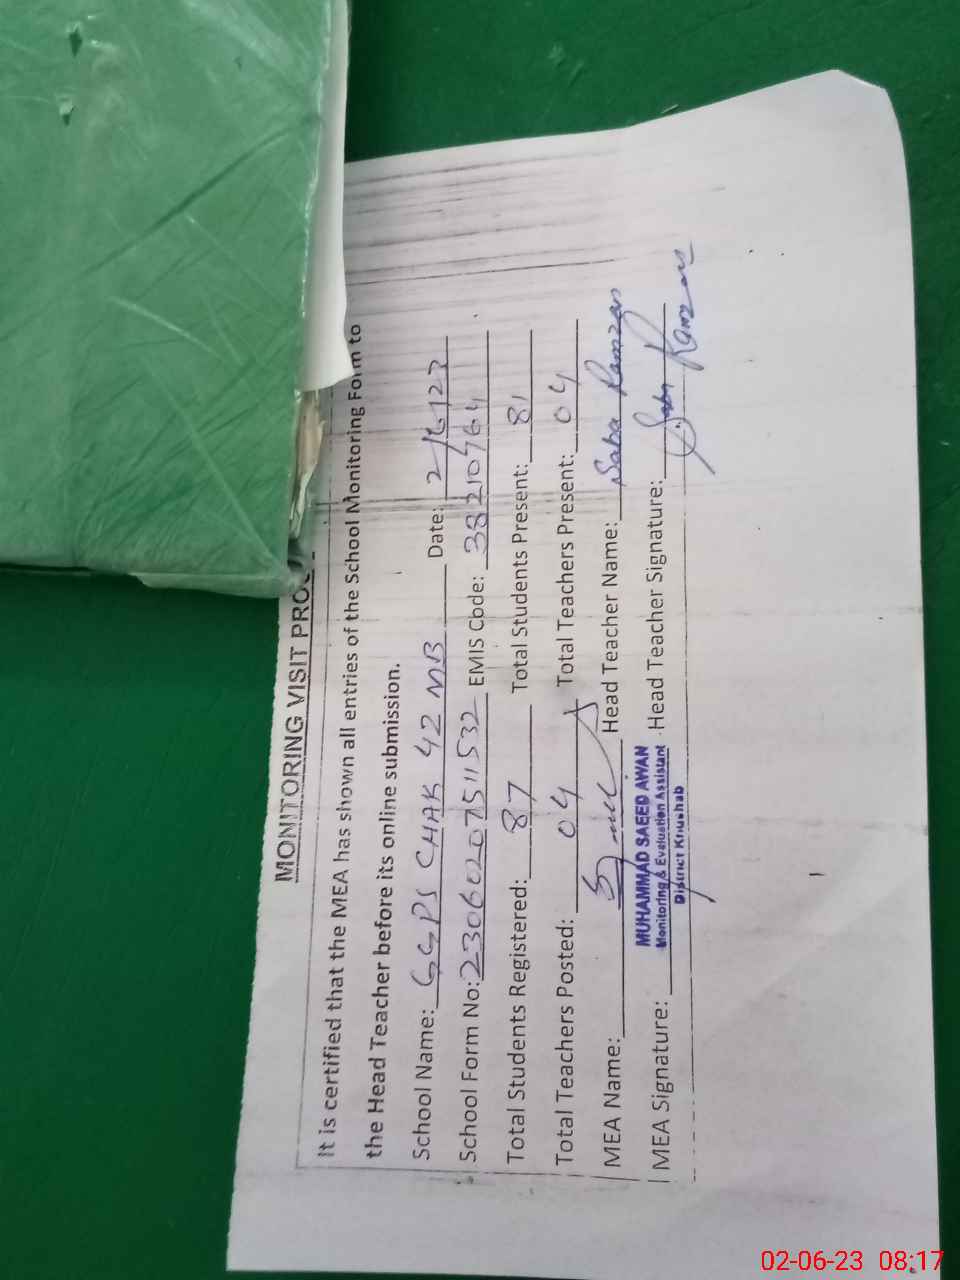 MONITORING VISIT PROO
It is certified that the MEA has shown all entries of the School Monitoring Form to
the Head Teacher before its online submission.
School Name: GGPS CHAK 42 MB Date: 2/6/23
School Form No: 23060207511532 EMIS Code: 38210464
Total Students Registered: 87 Total Students Present: 81
Total Teachers Posted: 04 Total Teachers Present: 04
MEA Name: Head Teacher Name: Saba Ramzan
MUHAMMAD SAEED AWAN
Monitoring & Evaluation Assistant
District Khushab
MEA Signature: Head Teacher Signature: Saba Ramzan
02-06-23 08:17